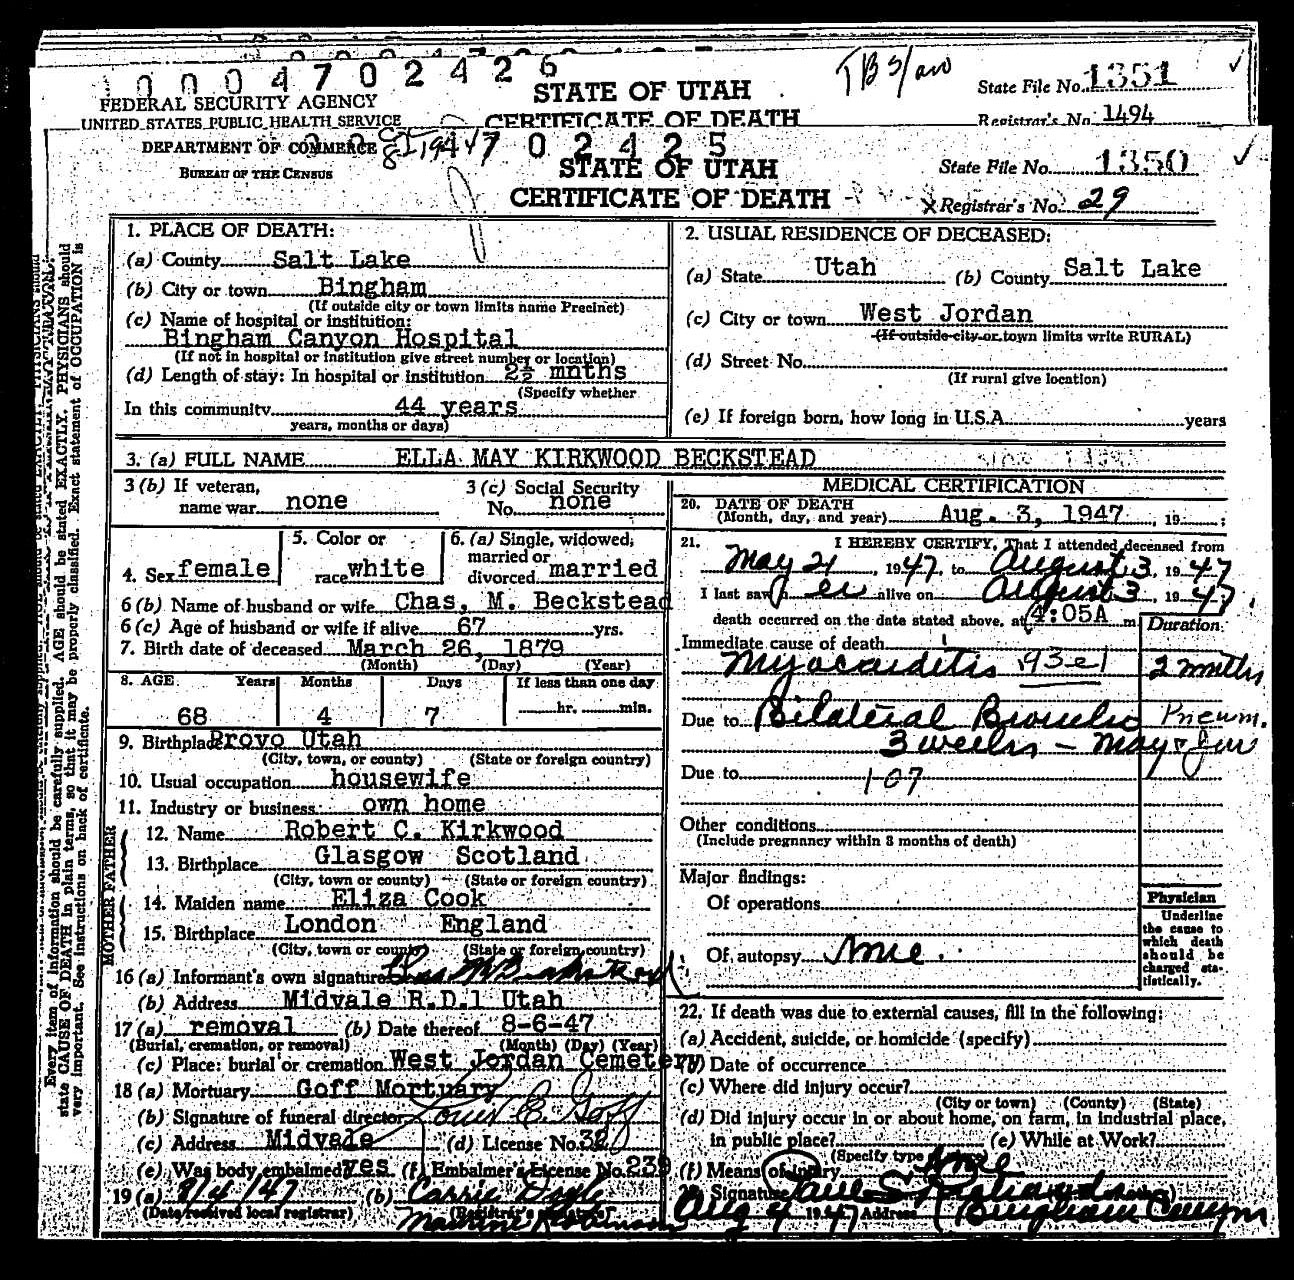 0004702426
TBS/aw
State File No. 1351
FEDERAL SECURITY AGENCY
UNITED STATES PUBLIC HEALTH SERVICE
STATE OF UTAH
CERTIFICATE OF DEATH
Registrar's No. 1494
DEPARTMENT OF COMMERCE
BUREAU OF THE CENSUS
4702425
STATE OF UTAH
CERTIFICATE OF DEATH
State File No. 1350
X Registrar's No. 29
1. PLACE OF DEATH:
(a) County Salt Lake
(b) City or town Bingham
(If outside city or town limits name Precinct)
(c) Name of hospital or institution:
Bingham Canyon Hospital
(If not in hospital or institution give street number or location)
(d) Length of stay: In hospital or institution 2½ mnths
(Specify whether
In this community 44 years
years, months or days)
2. USUAL RESIDENCE OF DECEASED:
(a) State Utah (b) County Salt Lake
(c) City or town West Jordan
(If outside city or town limits write RURAL)
(d) Street No.
(If rural give location)
(e) If foreign born, how long in U.S.A. years
3. (a) FULL NAME ELLA MAY KIRKWOOD BECKSTEAD
3 (b) If veteran, name war none
3 (c) Social Security No. none
4. Sex female
5. Color or race white
6. (a) Single, widowed, married or divorced married
6 (b) Name of husband or wife Chas, M. Beckstead
6 (c) Age of husband or wife if alive 67 yrs.
7. Birth date of deceased March 26, 1879
(Month) (Day) (Year)
8. AGE Years Months Days If less than one day
68 4 7 hr. min.
9. Birthplace Provo Utah
(City, town, or county) (State or foreign country)
10. Usual occupation housewife
11. Industry or business own home
FATHER
12. Name Robert C. Kirkwood
13. Birthplace Glasgow Scotland
(City, town or county) (State or foreign country)
MOTHER
14. Maiden name Eliza Cook
15. Birthplace London England
(City, town or county) (State or foreign country)
16 (a) Informant's own signature Chas M Beckstead
(b) Address Midvale R.D.1 Utah
17 (a) removal (b) Date thereof 8-6-47
(Burial, cremation, or removal) (Month) (Day) (Year)
(c) Place: burial or cremation West Jordan Cemetery
18 (a) Mortuary Goff Mortuary
(b) Signature of funeral director Louis E. Goff
(c) Address Midvale (d) License No. 32
(e) Was body embalmed? yes (f) Embalmer's License No. 239
19 (a) 8/4/47 (b) Carrie Doyle
(Date received local registrar) (Registrar's signature)
MEDICAL CERTIFICATION
20. DATE OF DEATH
(Month, day, and year) Aug. 3, 1947, 19 ;
21. I HEREBY CERTIFY, That I attended deceased from
May 21, 1947, to August 3, 1947
I last saw her alive on August 3, 1947,
death occurred on the date stated above, at 4:05A m.
Duration
Immediate cause of death
Myocarditis 93e1 2 months
Due to Bilateral Broncho Pneum.
3 weeks - May & Jun
Due to 107
Other conditions
(Include pregnancy within 3 months of death)
Major findings:
Of operations
Of autopsy None.
Physician
Underline the cause to which death should be charged statistically.
22. If death was due to external causes, fill in the following:
(a) Accident, suicide, or homicide (specify)
(b) Date of occurrence
(c) Where did injury occur?
(City or town) (County) (State)
(d) Did injury occur in or about home, on farm, in industrial place,
in public place? (e) While at Work?
(Specify type
(f) Means of injury None
Signature Paul S Richards
Aug 4 1947 Address Bingham Canyon
Every item of information should be carefully supplied. AGE should be stated EXACTLY. PHYSICIANS should
state CAUSE OF DEATH in plain terms, so that it may be properly classified. Exact statement of OCCUPATION is
very important. See instructions on back of certificate.